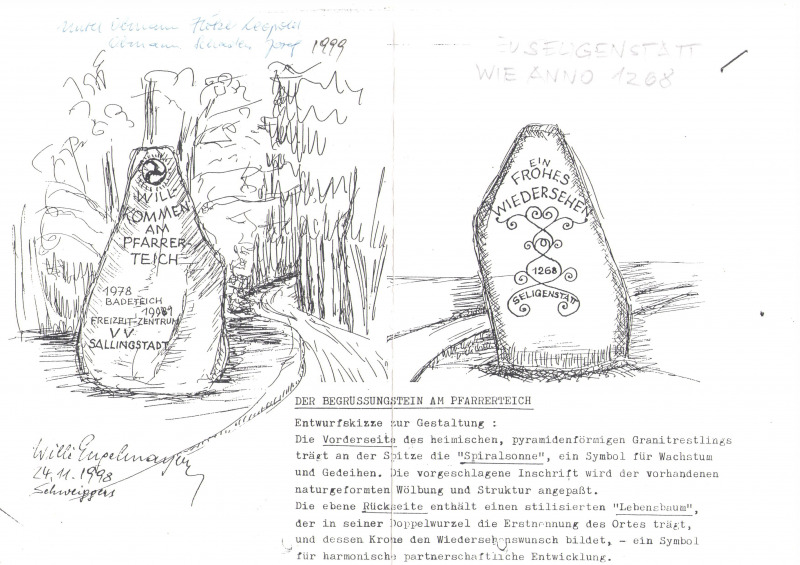 Unter Obmann
Obmann 1999
SELIGENSTATT
WIE ANNO 1268
WILL-
KOMMEN
AM
PFARRER-
TEICH
1978
BADETEICH
FREIZEIT-ZENTRUM
V V
SALLINGSTADT
EIN
FROHES
WIEDERSEHEN
1268
SELIGENSTAT
Willi Engelmayer
24.11.1998
Schweiggers
DER BEGRÜSSUNGSTEIN AM PFARRERTEICH
Entwurfskizze zur Gestaltung :
Die Vorderseite des heimischen, pyramidenförmigen Granitrestlings
trägt an der Spitze die "Spiralsonne", ein Symbol für Wachstum
und Gedeihen. Die vorgeschlagene Inschrift wird der vorhandenen
naturgeformten Wölbung und Struktur angepaßt.
Die ebene Rückseite enthält einen stilisierten "Lebensbaum",
der in seiner Doppelwurzel die Erstnennung des Ortes trägt,
und dessen Krone den Wiedersehenswunsch bildet, - ein Symbol
für harmonische partnerschaftliche Entwicklung.